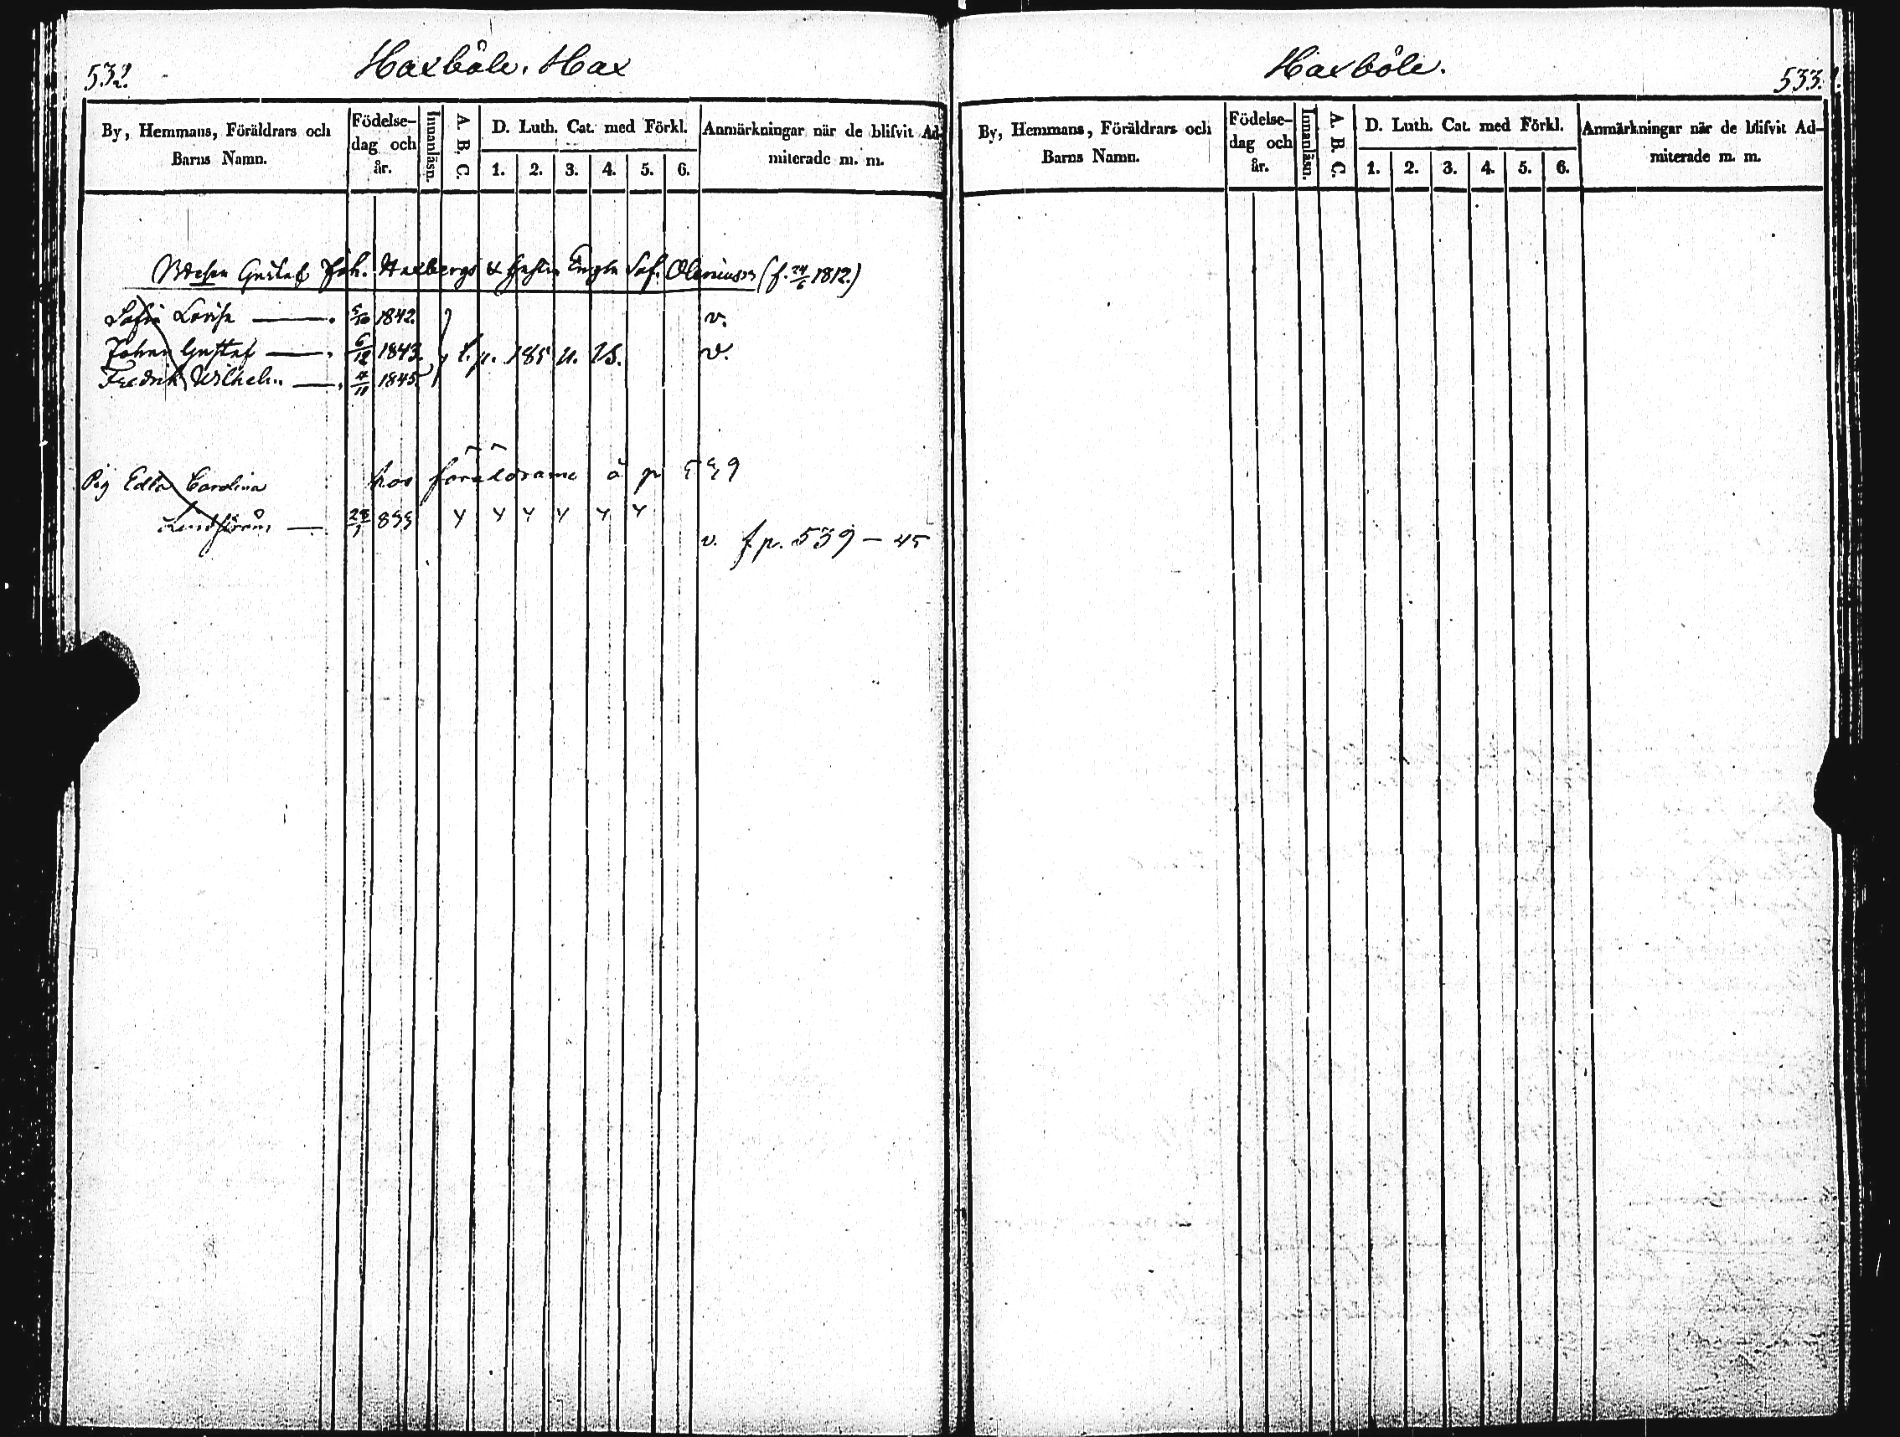 532.
Haxböle. Hax
By, Hemmans, Föräldrars och
Barns Namn.
Födelse-
dag och
år.
Innanläsn.
A. B. C.
D. Luth. Cat. med Förkl.
1. 2. 3. 4. 5. 6.
Anmärkningar när de blifvit Ad-
miterade m. m.
Gustaf Joh. Haxbergs & Hustru Engla Sof. (f. 24/6 1812.)
Sofia Lovisa 5/10 1842. v.
Johan Gustaf 6/12 1843. f. p. 185 u. v.
Fredrik Wilhelm 4/11 1845
Pig Edla Carolina hos föräldrarne å p 559
Lindström 28/1 855 v. f p. 539 – 45
Haxböle.
533.
By, Hemmans, Föräldrars och
Barns Namn.
Födelse-
dag och
år.
Innanläsn.
A. B. C.
D. Luth. Cat. med Förkl.
1. 2. 3. 4. 5. 6.
Anmärkningar när de blifvit Ad-
miterade m. m.